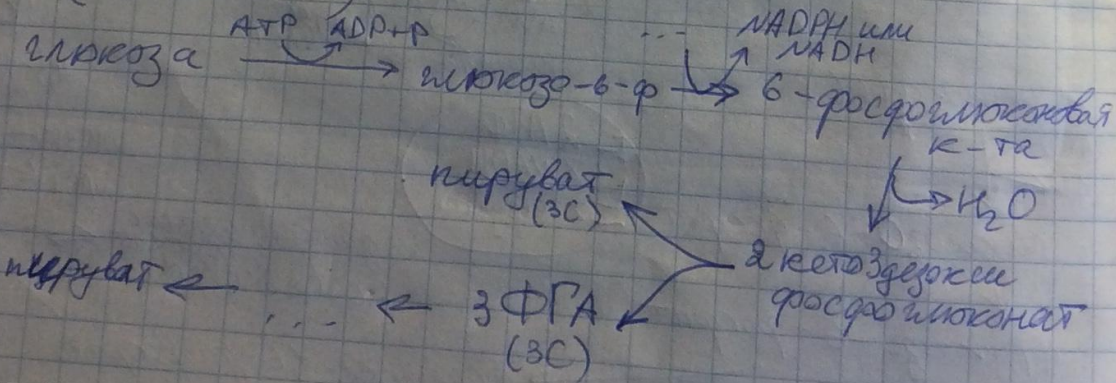 глюкоза ATP ADP+P глюкозо-6-ф ... NADPH или
NADH
6-фосфоглюконовая
к-та
H₂O
2 кето 3 дезокси
фосфоглюконат
пируват
(3C)
3 ФГА
(3C)
...
пируват